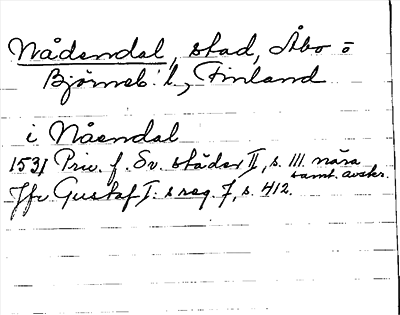 Nådendal, stad, Åbo o
Björneb. l., Finland
i Nåendal
1531 Priv. f. Sv. städer II, s. 111. nära
samt. avskr.
Jfr Gustaf I:s reg. 7, s. 412.